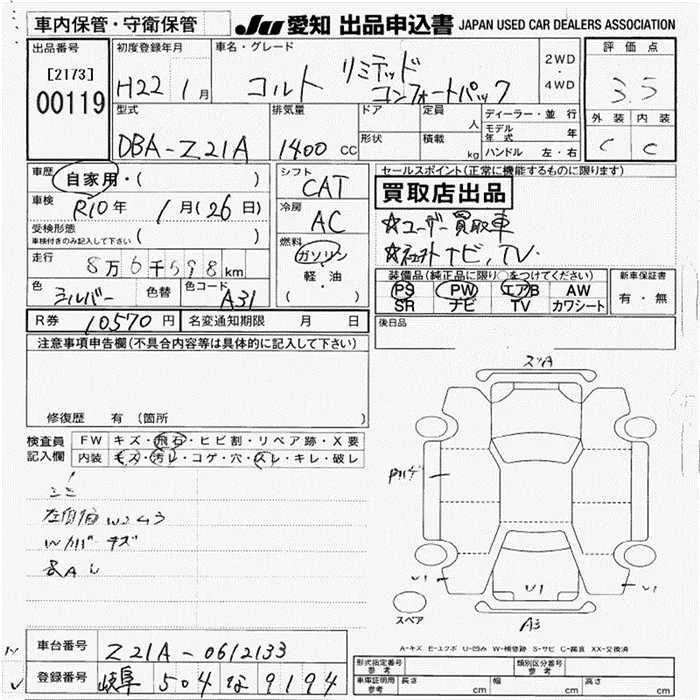 車内保管・守衛保管
JU 愛知 出品申込書 JAPAN USED CAR DEALERS ASSOCIATION
出品番号
[2173]
00119
初度登録年月
H22年 1月
車名・グレード
コルト リミテッド
コンフォートパック
2WD
・
4WD
評価点
3.5
外装 内装
C C
型式
DBA-Z21A
排気量
1400 CC
ドア
形状
定員
人
積載
kg
ディーラー・並行
モデル年式 年
ハンドル 左・右
車歴
自家用・( )
車検
R10年 1月(26日)
受検形態
車検付きのみ記入して下さい ( )
走行
8万6千598km
色
シルバー
色替
色コード
A31
シフト
CAT
冷房
AC
燃料
ガソリン
軽・油
( )
セールスポイント(正常に機能するものに限ります)
買取店出品
☆ユーザー買取車
ナビ,TV.
装備品(純正品に限り○をつけてください)
PS PW エアB AW
SR ナビ TV カワシート
新車保証書
有・無
R券 10570円
名変通知期限 月 日
後日品
注意事項申告欄(不具合内容等は具体的に記入して下さい)
修復歴 有 (箇所 )
検査員
記入欄
FW キズ・飛石・ヒビ割・リペア跡・X要
内装 キズ・汚レ・コゲ・穴・スレ・キレ・破レ
スペア
U1
U1
U1
A3
A-キズ E-エクボ U-凹み W-補修跡 S-サビ C-腐食 XX-交換済
車台番号 Z21A-0612133
登録番号 岐阜 504 な 9194
形式指定番号
参考
類別区分番号
参考
車庫証明用
参考
長さ cm
幅 cm
高さ cm